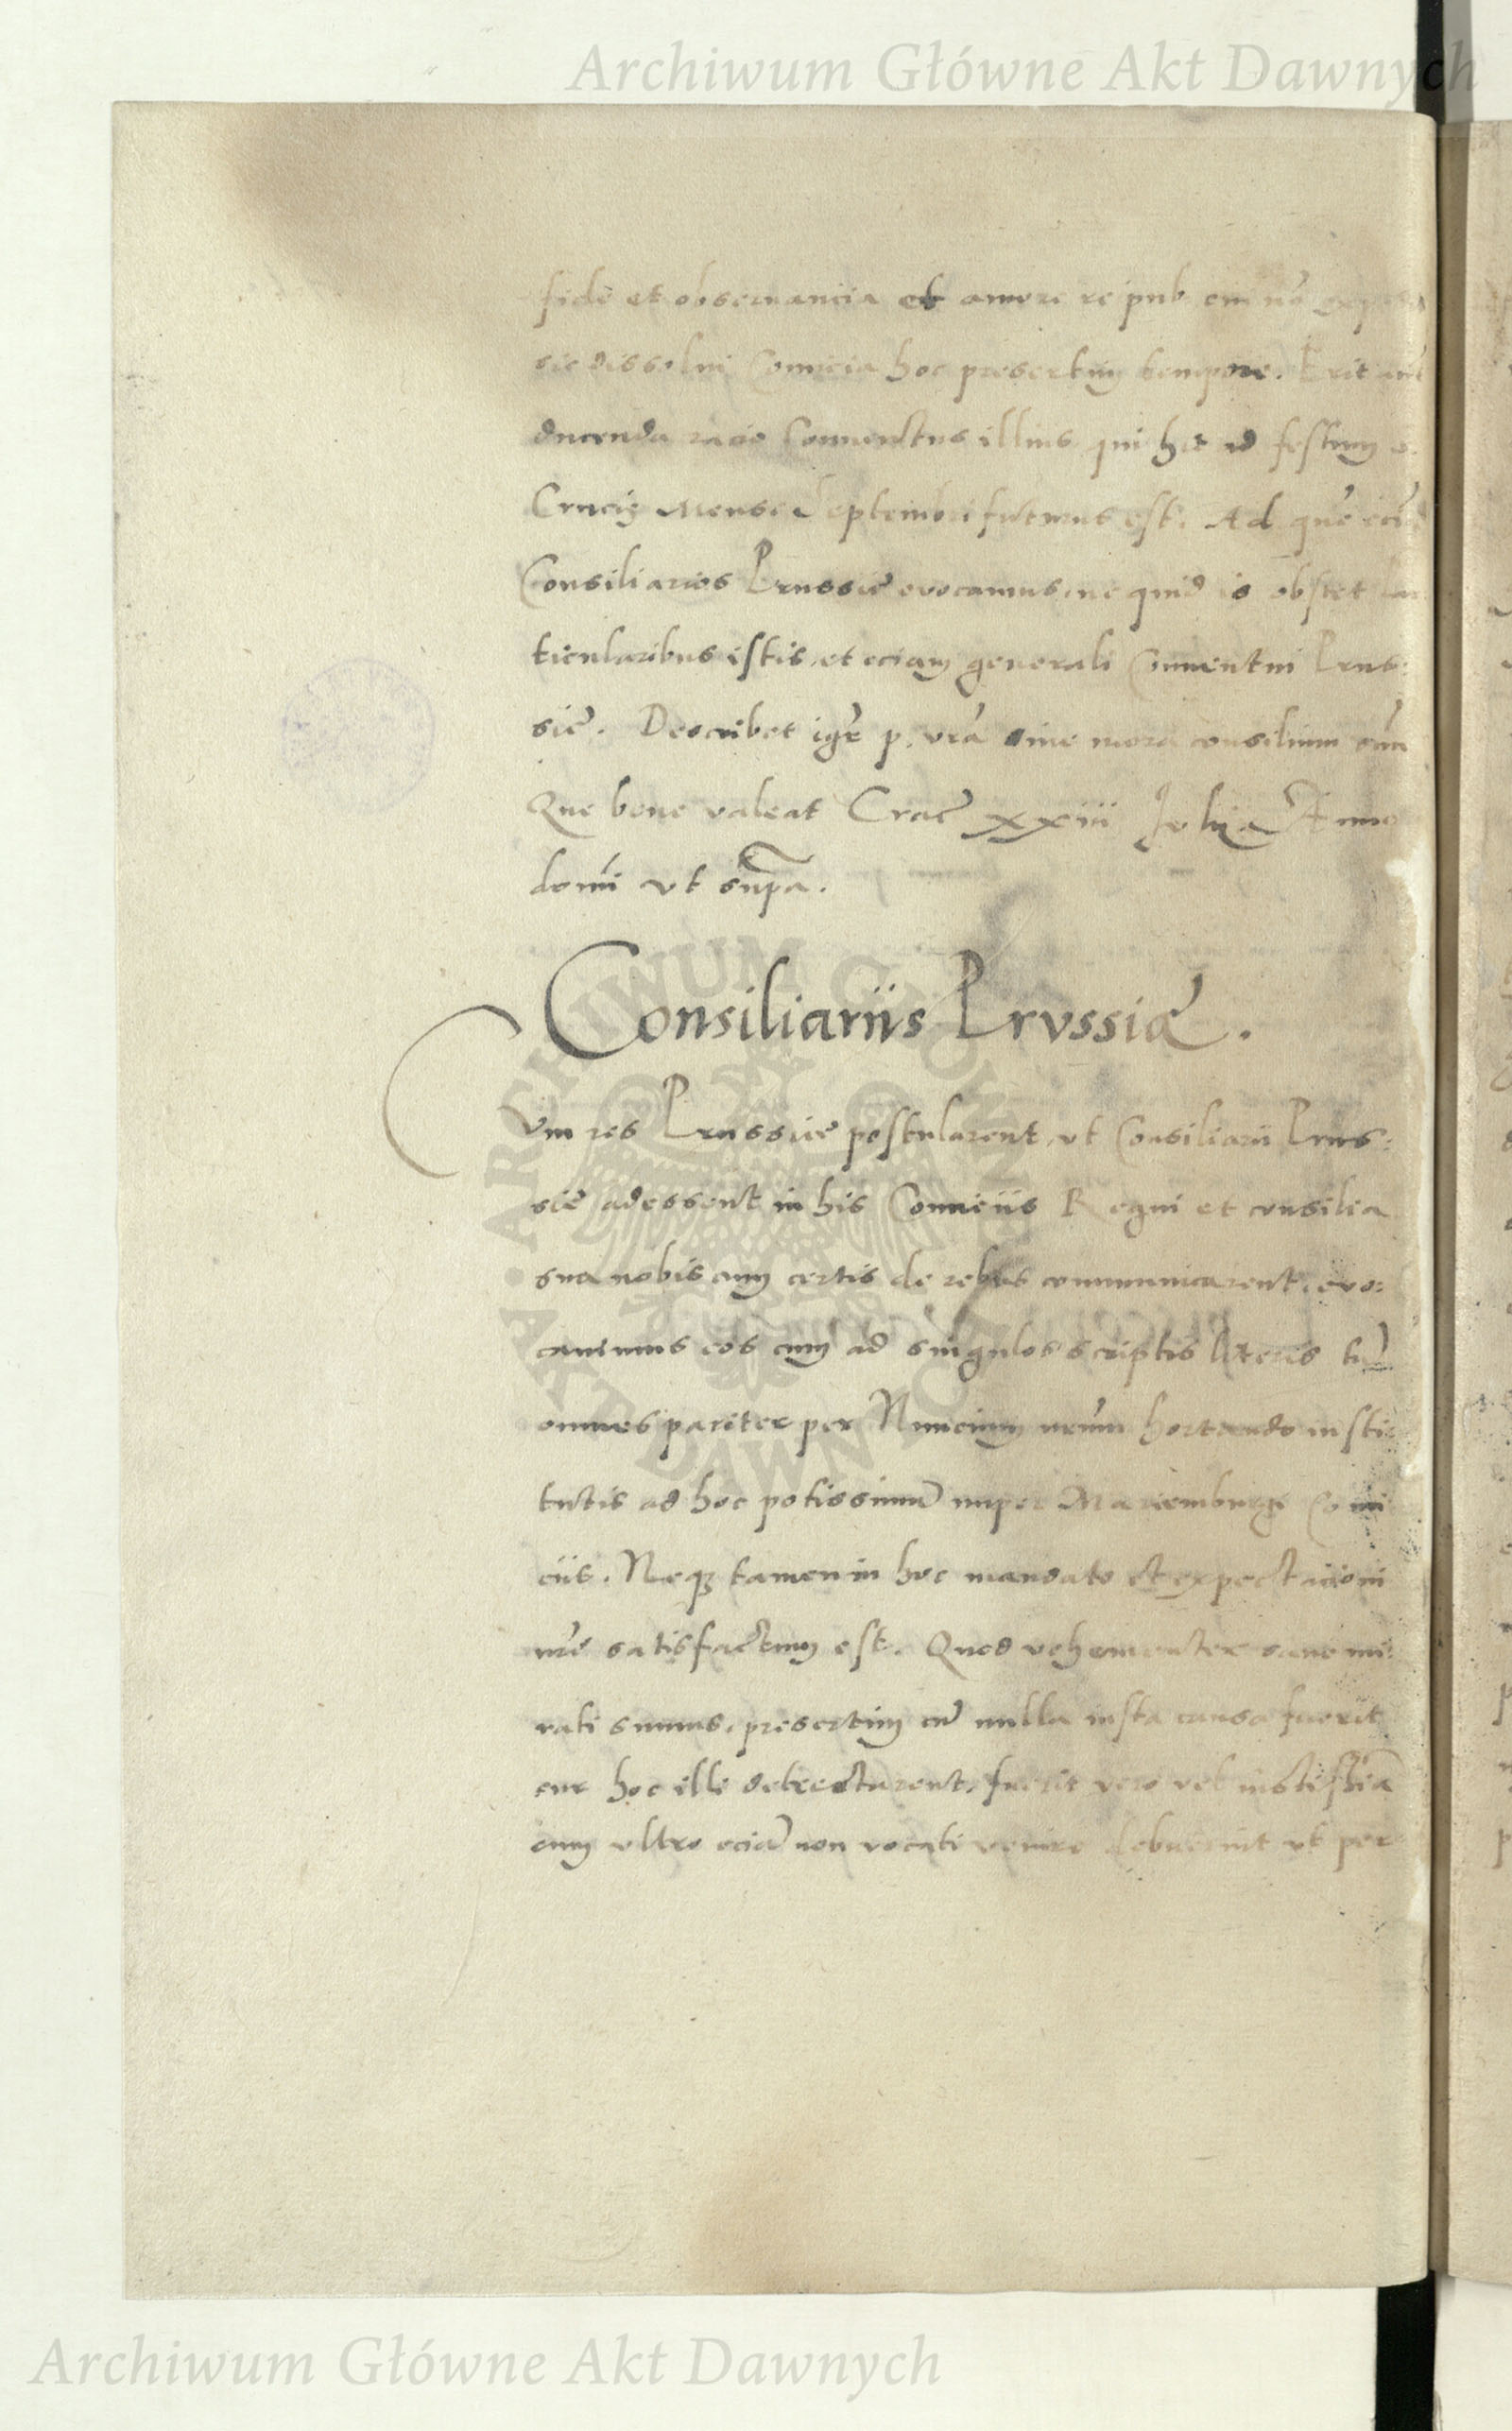 Archiwum Główne Akt Dawnych
fidē et observancia et amore reipub. em̄ nō
sic dissolvi Comicia hoc presertim tempore. Erit
ducenda racio Conventus illius qui hic ad festum s.
Crucis Mense Septembri futurus est. Ad quē eciā
Consiliarios Prussię evocamus, ne quid is obstet
ticularibus istis, et eciam generali Conventui Prus:
się. Describet igr̄ p. vrā sine mora consilium suū
Que bene valeat Crac̄ xxiii Julij Anno
domi ut supra.
Consiliariis Prussię.
Cum res Prussię postularent, ut Consiliarii Prus:
się adessent in his Comiciis Regni et consilia
sua nobiscum certis de rebus communicarent, evo:
cavimus eos cum ad singulos scriptis literis tū
omnes pariter per Nuncium nrūm hortando insti:
tutis ad hoc potissimū nuper Mariemburgi Comi
ciis. Neqꝫ tamen in hoc mandato et expectacioni
nrę satisfactum est. Quod vehementer sane mi:
rati sumus, presertim cū nulla iusta causa fuerit
cur hoc illi detrectarent, fuerit vero vel
cum ultro eciā non vocati venire debuerint ut per
ARCHIWUM GŁÓWNE AKT DAWNYCH
Archiwum Główne Akt Dawnych